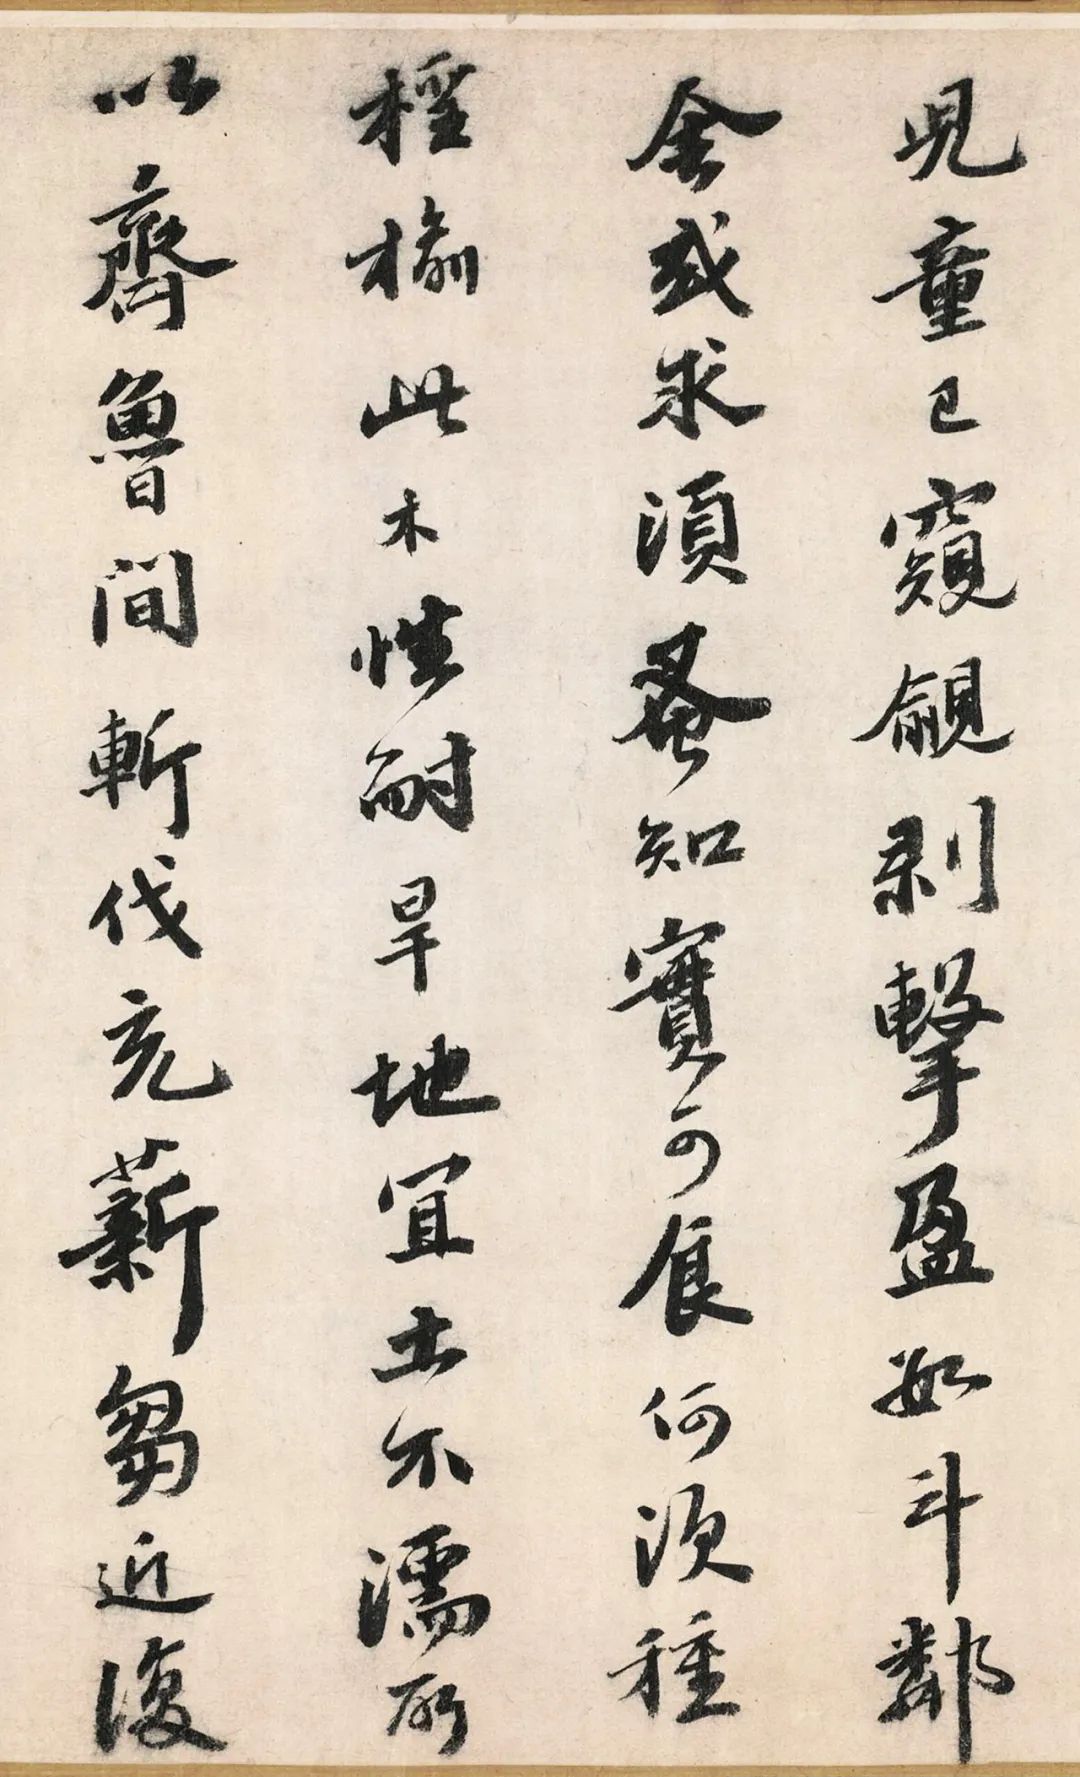 児童已窺覦剥擊盈如斗鄰
舍或求須蚤知實可食何須種
桱榆此木性耐旱地宜土不濡所
以齊魯間斬伐充薪芻近復